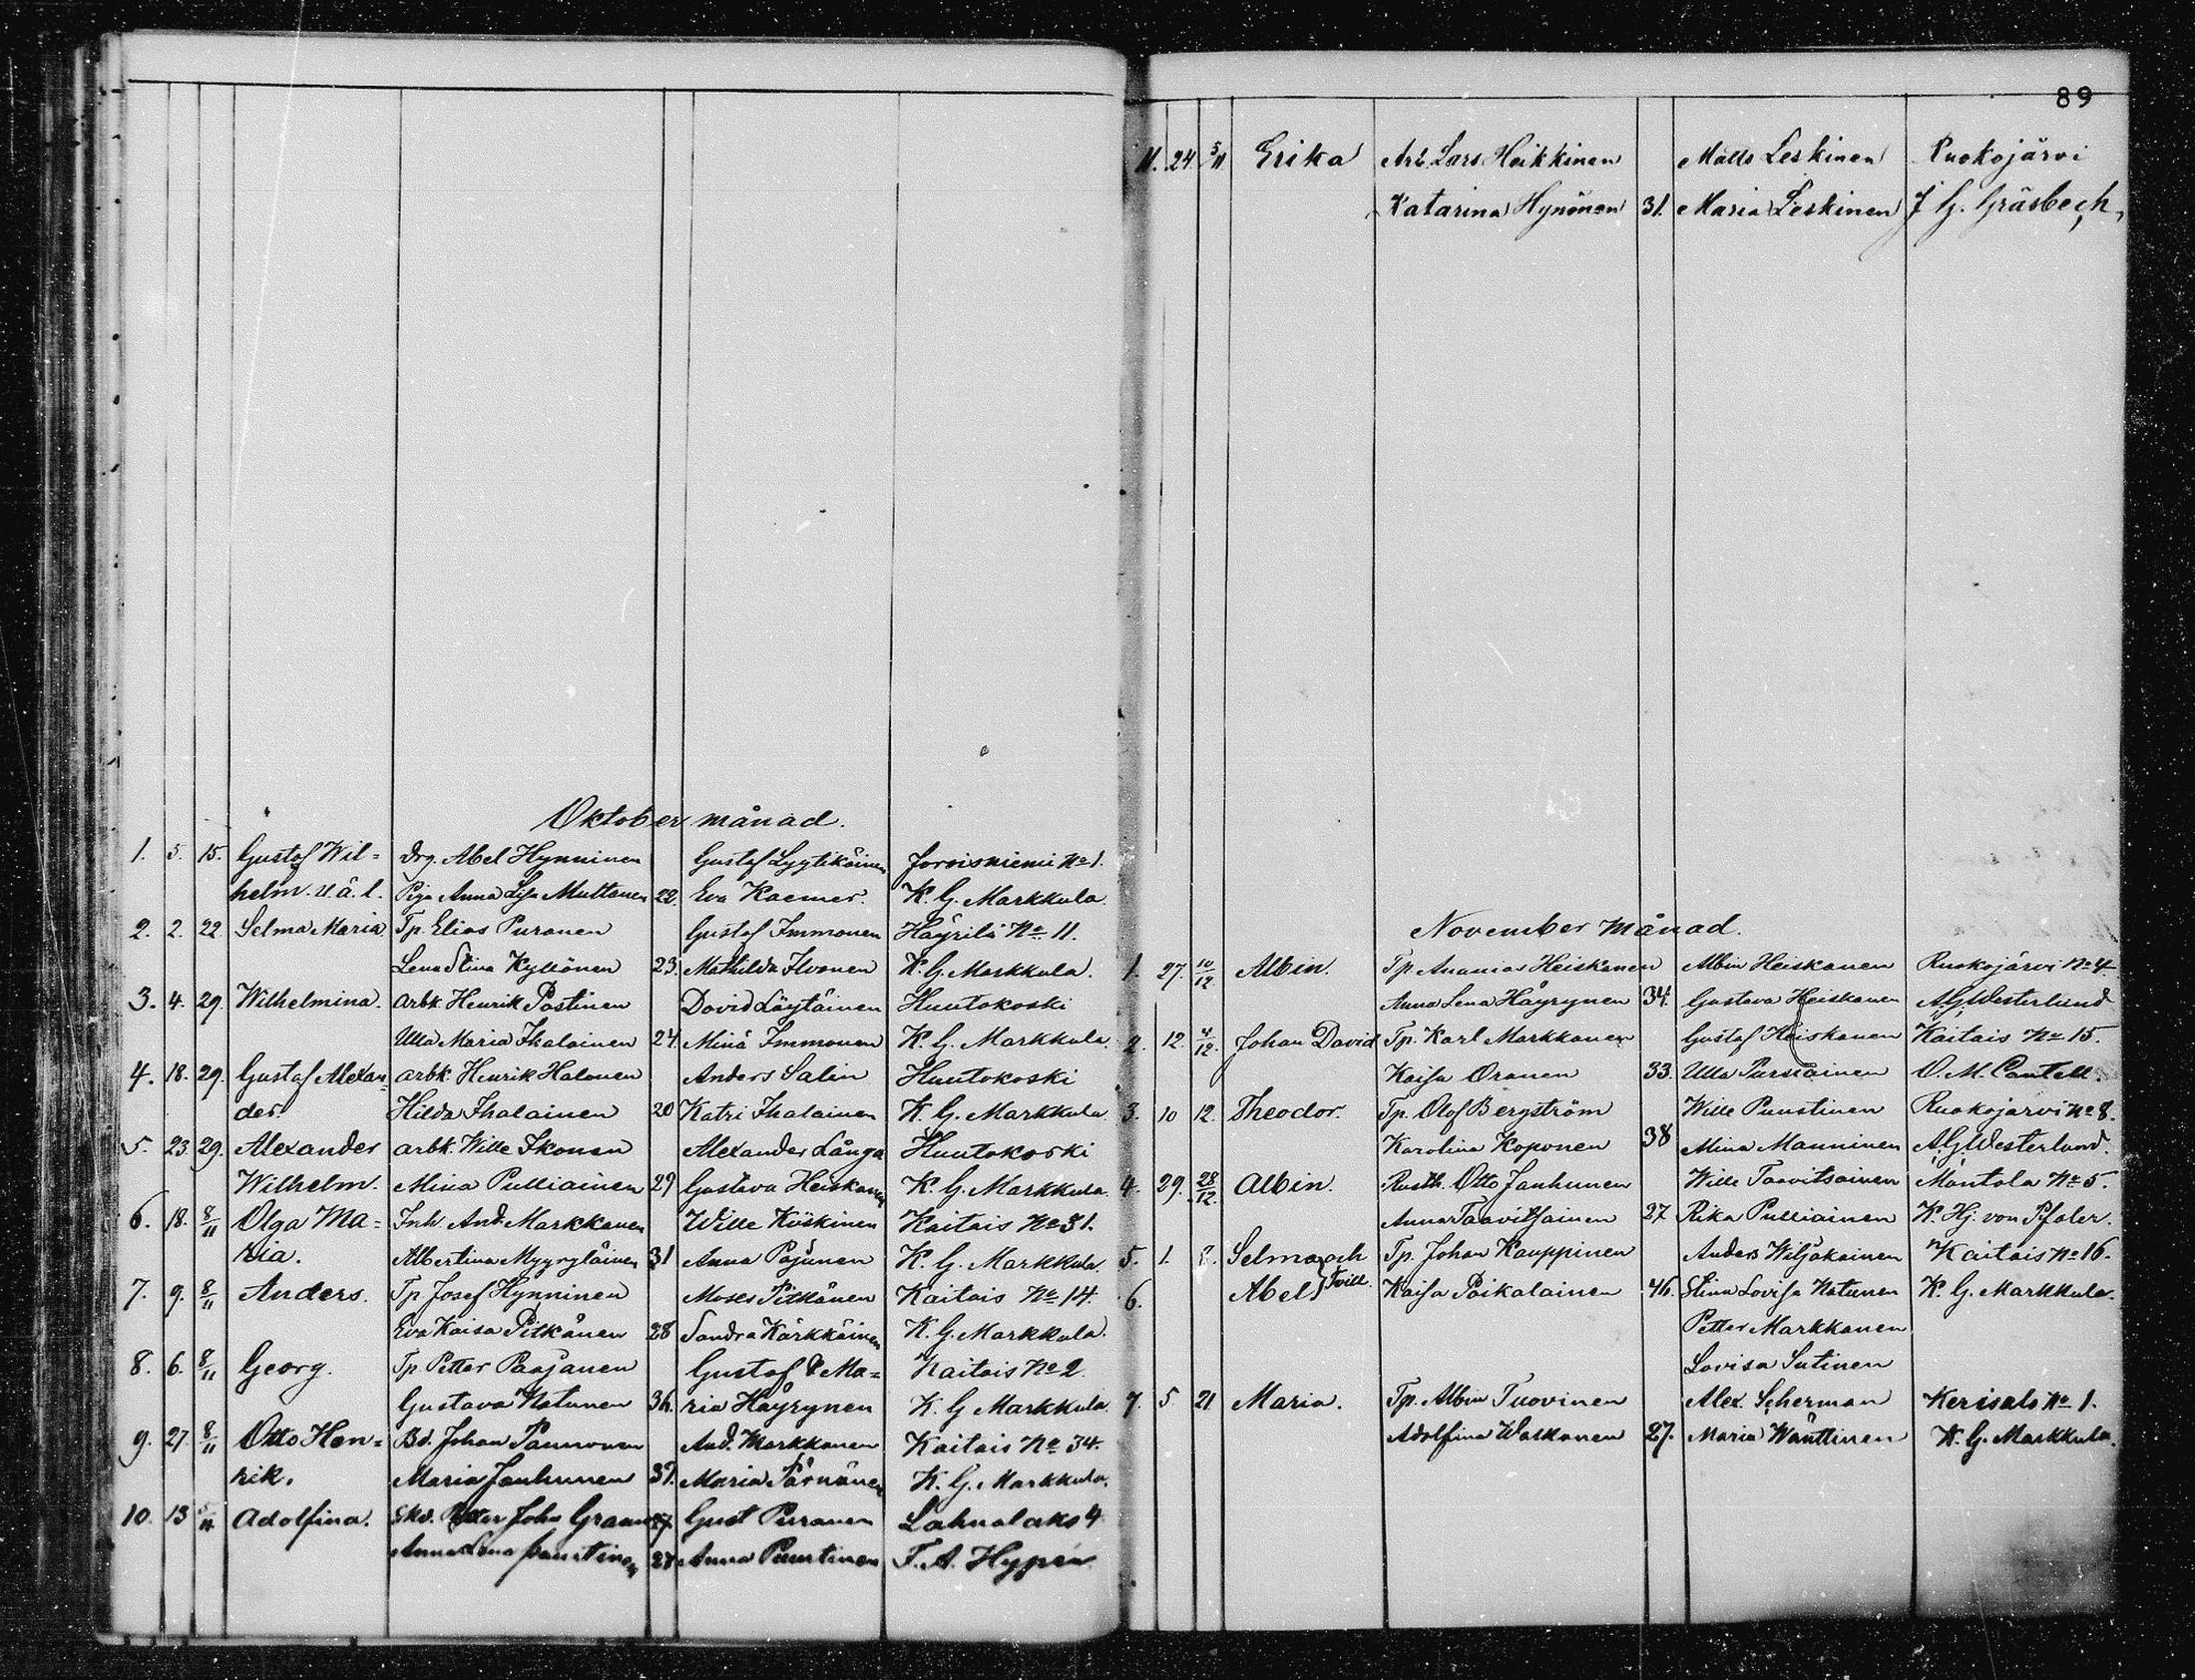 Oktober månad.
1. 5. 15. Gustaf Wil= Drg. Abel Hynninen Gustaf Lyytikäinen Joroisniemi No 1.
helm. u. ä. l. Piga Anna Lisa Muttanen 22. Eva Kaemer. K. G. Markkula.
2. 2. 22 Selma Maria Tp. Elias Puranen Gustaf Immonen Häyrilä No 11.
Lena Stina Kyllönen 23. Mathilda Ilvonen K. G. Markkula.
3. 4. 29. Wilhelmina. Arbk Henrik Postinen David Löytäinen Huutokoski
Ulla Maria Ihalainen 24. Mina Immonen K. G. Markkula.
4. 18. 29. Gustaf Alexan= arbk. Henrik Halonen Anders Salin Huutokoski
der. Hilda Ihalainen 20 Katri Ihalainen K. G. Markkula
5. 23. 29. Alexander arbk. Wille Ikonen Alexander Långa Huutokoski
Wilhelm. Mina Pulliainen 29 Gustava Heiskanen K. G. Markkula.
6. 18. 8/11 Olga Ma= Inh And. Markkanen Wille Kiiskinen Kaitais No 31.
ria. Albertina Myyryläinen 31 Anna Pajunen K. G. Markkula.
7. 9. 8/11 Anders. Tp. Josef Hynninen Moses Pitkänen Kaitais No 14.
Eva Kaisa Pitkänen 28 Sandra Kärkkäinen K. G. Markkula.
8. 6. 8/11 Georg. Tp Petter Paajanen Gustaf & Ma= Kaitais No 2.
Gustava Natunen 36. ria Häyrynen K. G Markkula.
9. 27. 8/11 Otto Hen= Bd. Johan Pannonen And. Markkanen Kaitais No 34.
rik. Maria Janhunen 37. Maria Pärnänen K. G. Markkula.
10. 13 Adolfina. Petter John Graan Gust Purranen Lahnalaks 4
Anna Lena Puustinen 28 Anna Puustinen F. A. Hypén
89
11. 24. 5/11 Erika Arb. Lars Heikkinen Matts Leskinen Ruokojärvi
Katarina Hynönen 31. Maria Leskinen J. G. Gräsbeck,
November Månad.
1. 27. 10/12 Albin. Tp. Ananias Heiskanen Albin Heiskanen Ruokojärvi No 4
Anna Lena Häyrynen 34. Gustava Heiskanen A. G. Westerlund
2. 12. 4/12. Johan David Tp. Karl Markkanen Gustaf Heiskanen Kaitais No 15.
Kaisa Oranen 33. Ulla Pursiainen O. M. Cantell.
3. 10 12. Theodor. Tp. Olof Bergström Wille Puustinen Ruokojärvi No 8.
Karolina Koponen 38 Mina Manninen A. G. Westerlund.
4. 29. 28/12. Albin. Rusth. Otto Janhunen Wille Taavitsainen Mäntola No 5.
Anna Taavitsainen 27 Rika Pulliainen K. Hj. von Pfaler.
5. 1. 8. Selma och Tp. Johan Kauppinen Anders Wiljakainen Kaitais No 16.
6. Abel } Tvill. Kaisa Poikalainen 46. Stina Lovisa Natunen K. G. Markkula.
Petter Markkanen
Lovisa Sutinen
7. 5. 21 Maria. Tp. Albin Tuovinen Alex. Scherman Kerisalo No 1.
Adolfina Waskonen 27. Maria Wänttinen K. G. Markkula.